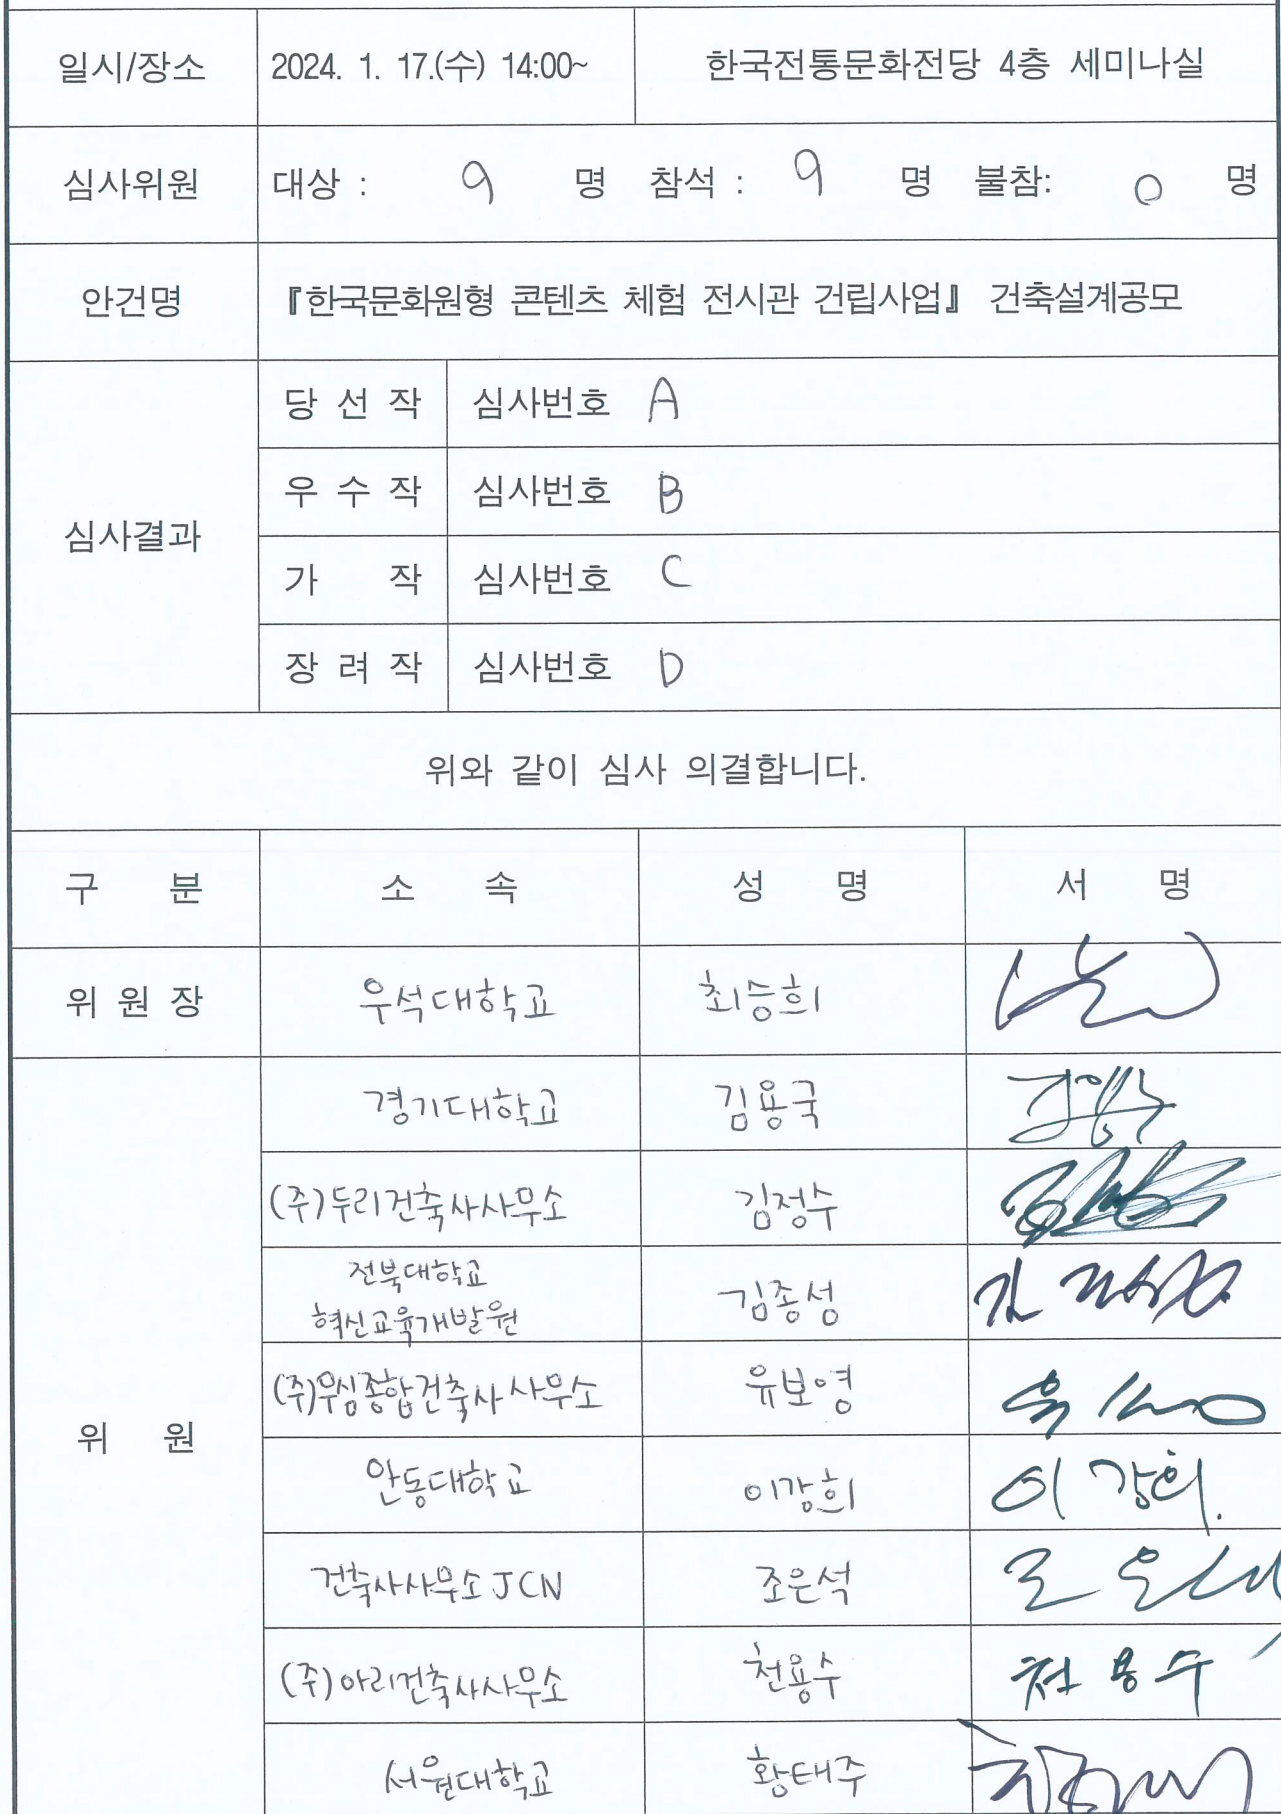 일시/장소 2024. 1. 17.(수) 14:00~ 한국전통문화전당 4층 세미나실
심사위원 대상 : 9 명 참석 : 9 명 불참: 0 명
안건명 『한국문화원형 콘텐츠 체험 전시관 건립사업』 건축설계공모
심사결과
당 선 작 심사번호 A
우 수 작 심사번호 B
가 작 심사번호 C
장 려 작 심사번호 D
위와 같이 심사 의결합니다.
구 분 소 속 성 명 서 명
위 원 장 우석대학교 최승희
위 원
경기대학교 김용국
(주)두리건축사사무소 김정수
전북대학교
혁신교육개발원 김종성
(주)무심종합건축사사무소 유보영
안동대학교 이강희 이강희.
건축사사무소 JCN 조은석
(주)아리건축사사무소 천용수 천용수
서원대학교 황태주